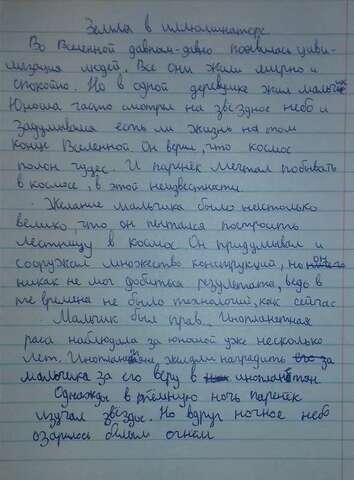 Земля в иллюминаторе
Во Вселенной давным-давно появилась циви-
лизация людей. Все они жили мирно и
спокойно. Но в одной деревушке жил мальчик
Юноша часто смотрел на звездное небо и
задумывался есть ли жизнь на том
конце Вселенной. Он верил, что космос
полон чудес. И паренёк мечтал побывать
в космосе, в этой неизвестности.
Желание мальчика было настолько
велико, что он пытался построить
лестницу в космос. Он придумывал и
сооружал множество конструкций, но он
никак не мог добиться результата, ведь в
те времена не было технологий, как сейчас
Мальчик был прав. Инопланетная
раса наблюдала за юношей уже несколько
лет. Инопланетяне, желали наградить его за
мальчика за его веру в инопланетян.
Однажды в тёмную ночь паренёк
изучал звёзды. Но вдруг ночное небо
озарилось белым огнём